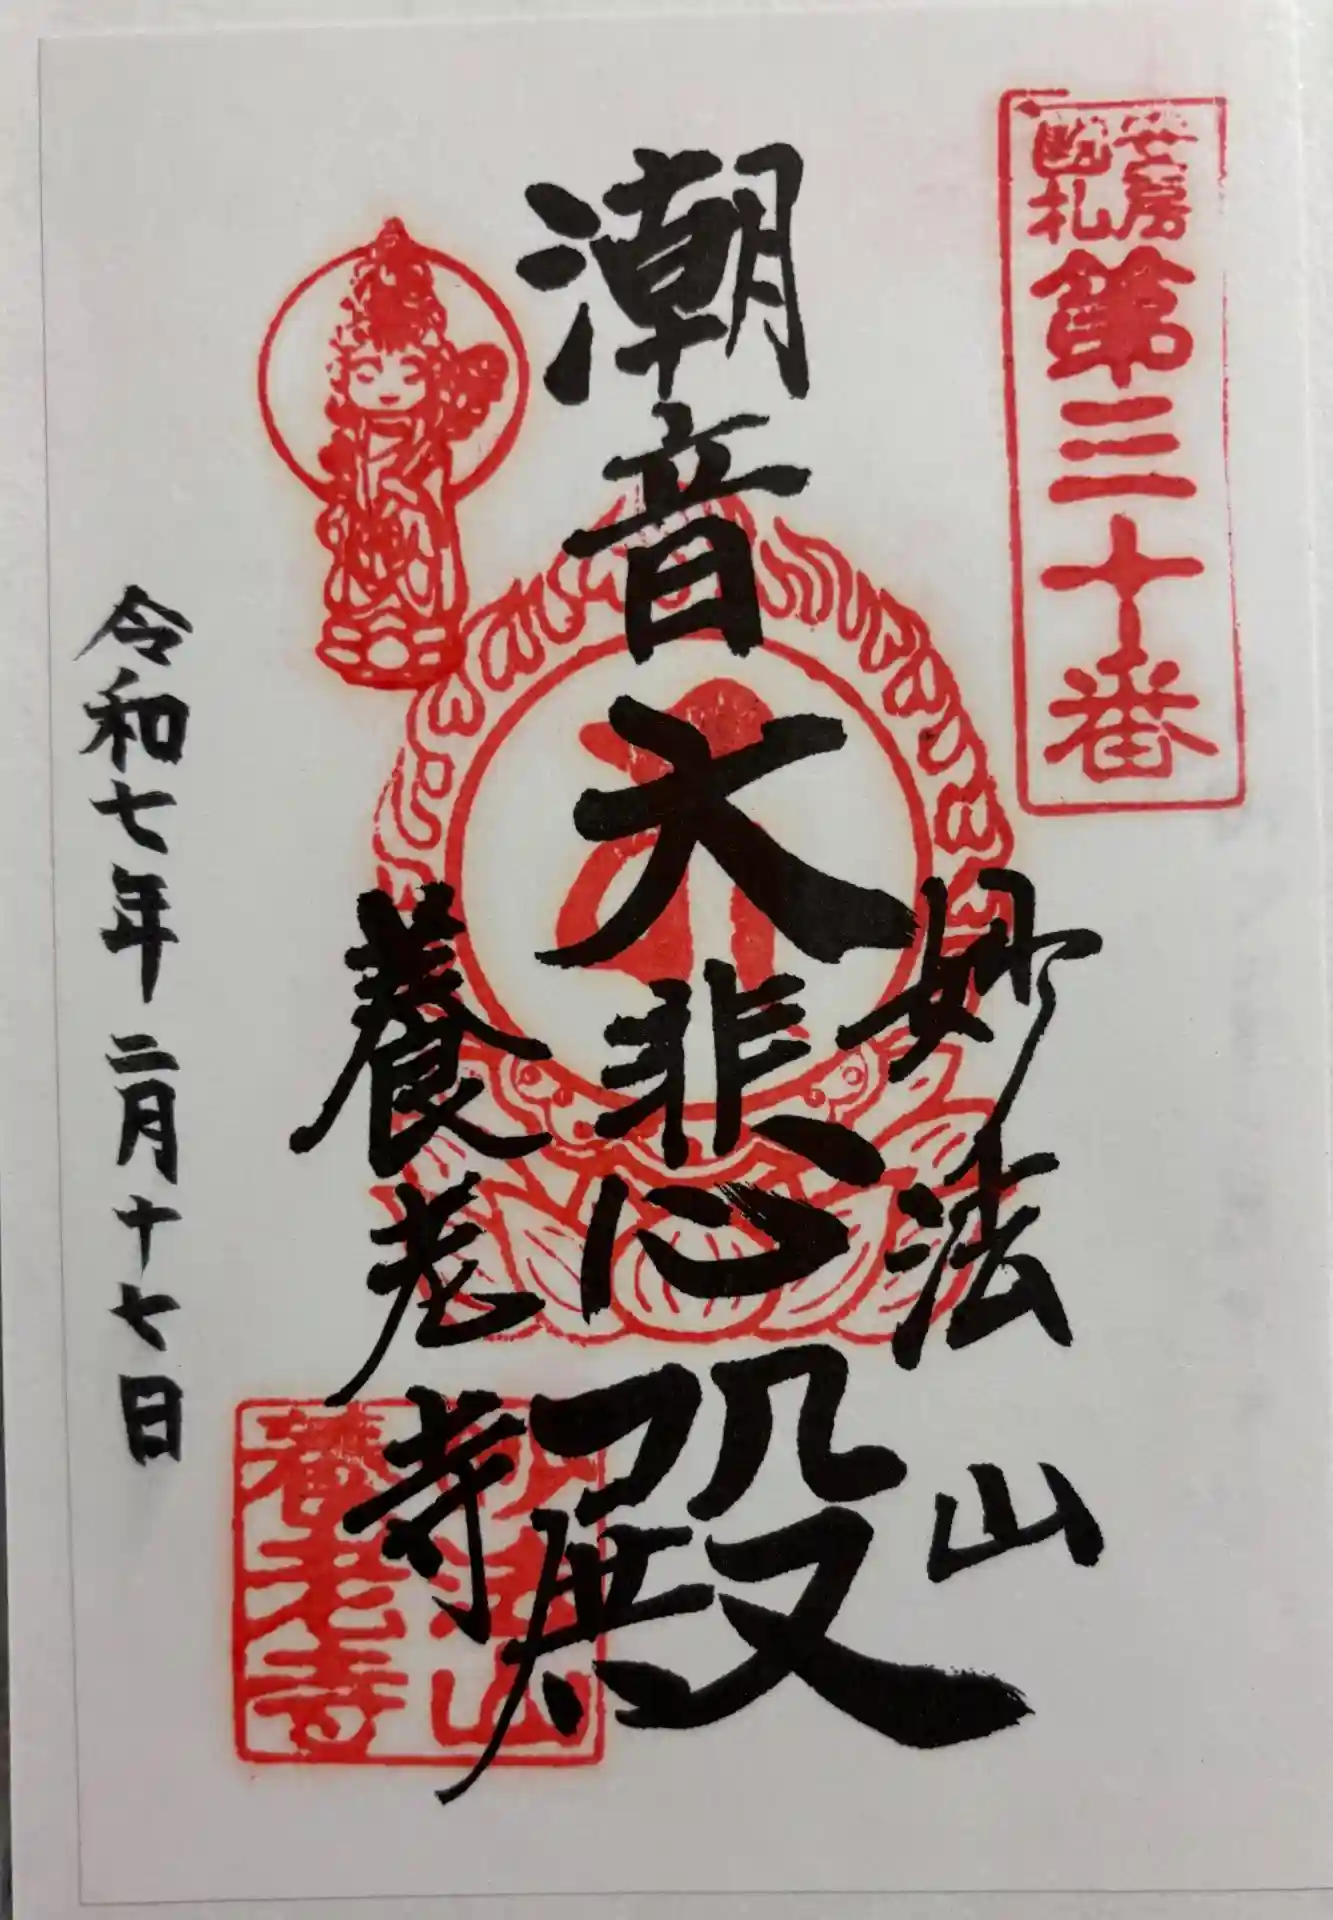 安房
國札
第三十番
妙法山
潮音大悲殿
養老寺
妙法山
養老寺
令和七年二月十七日